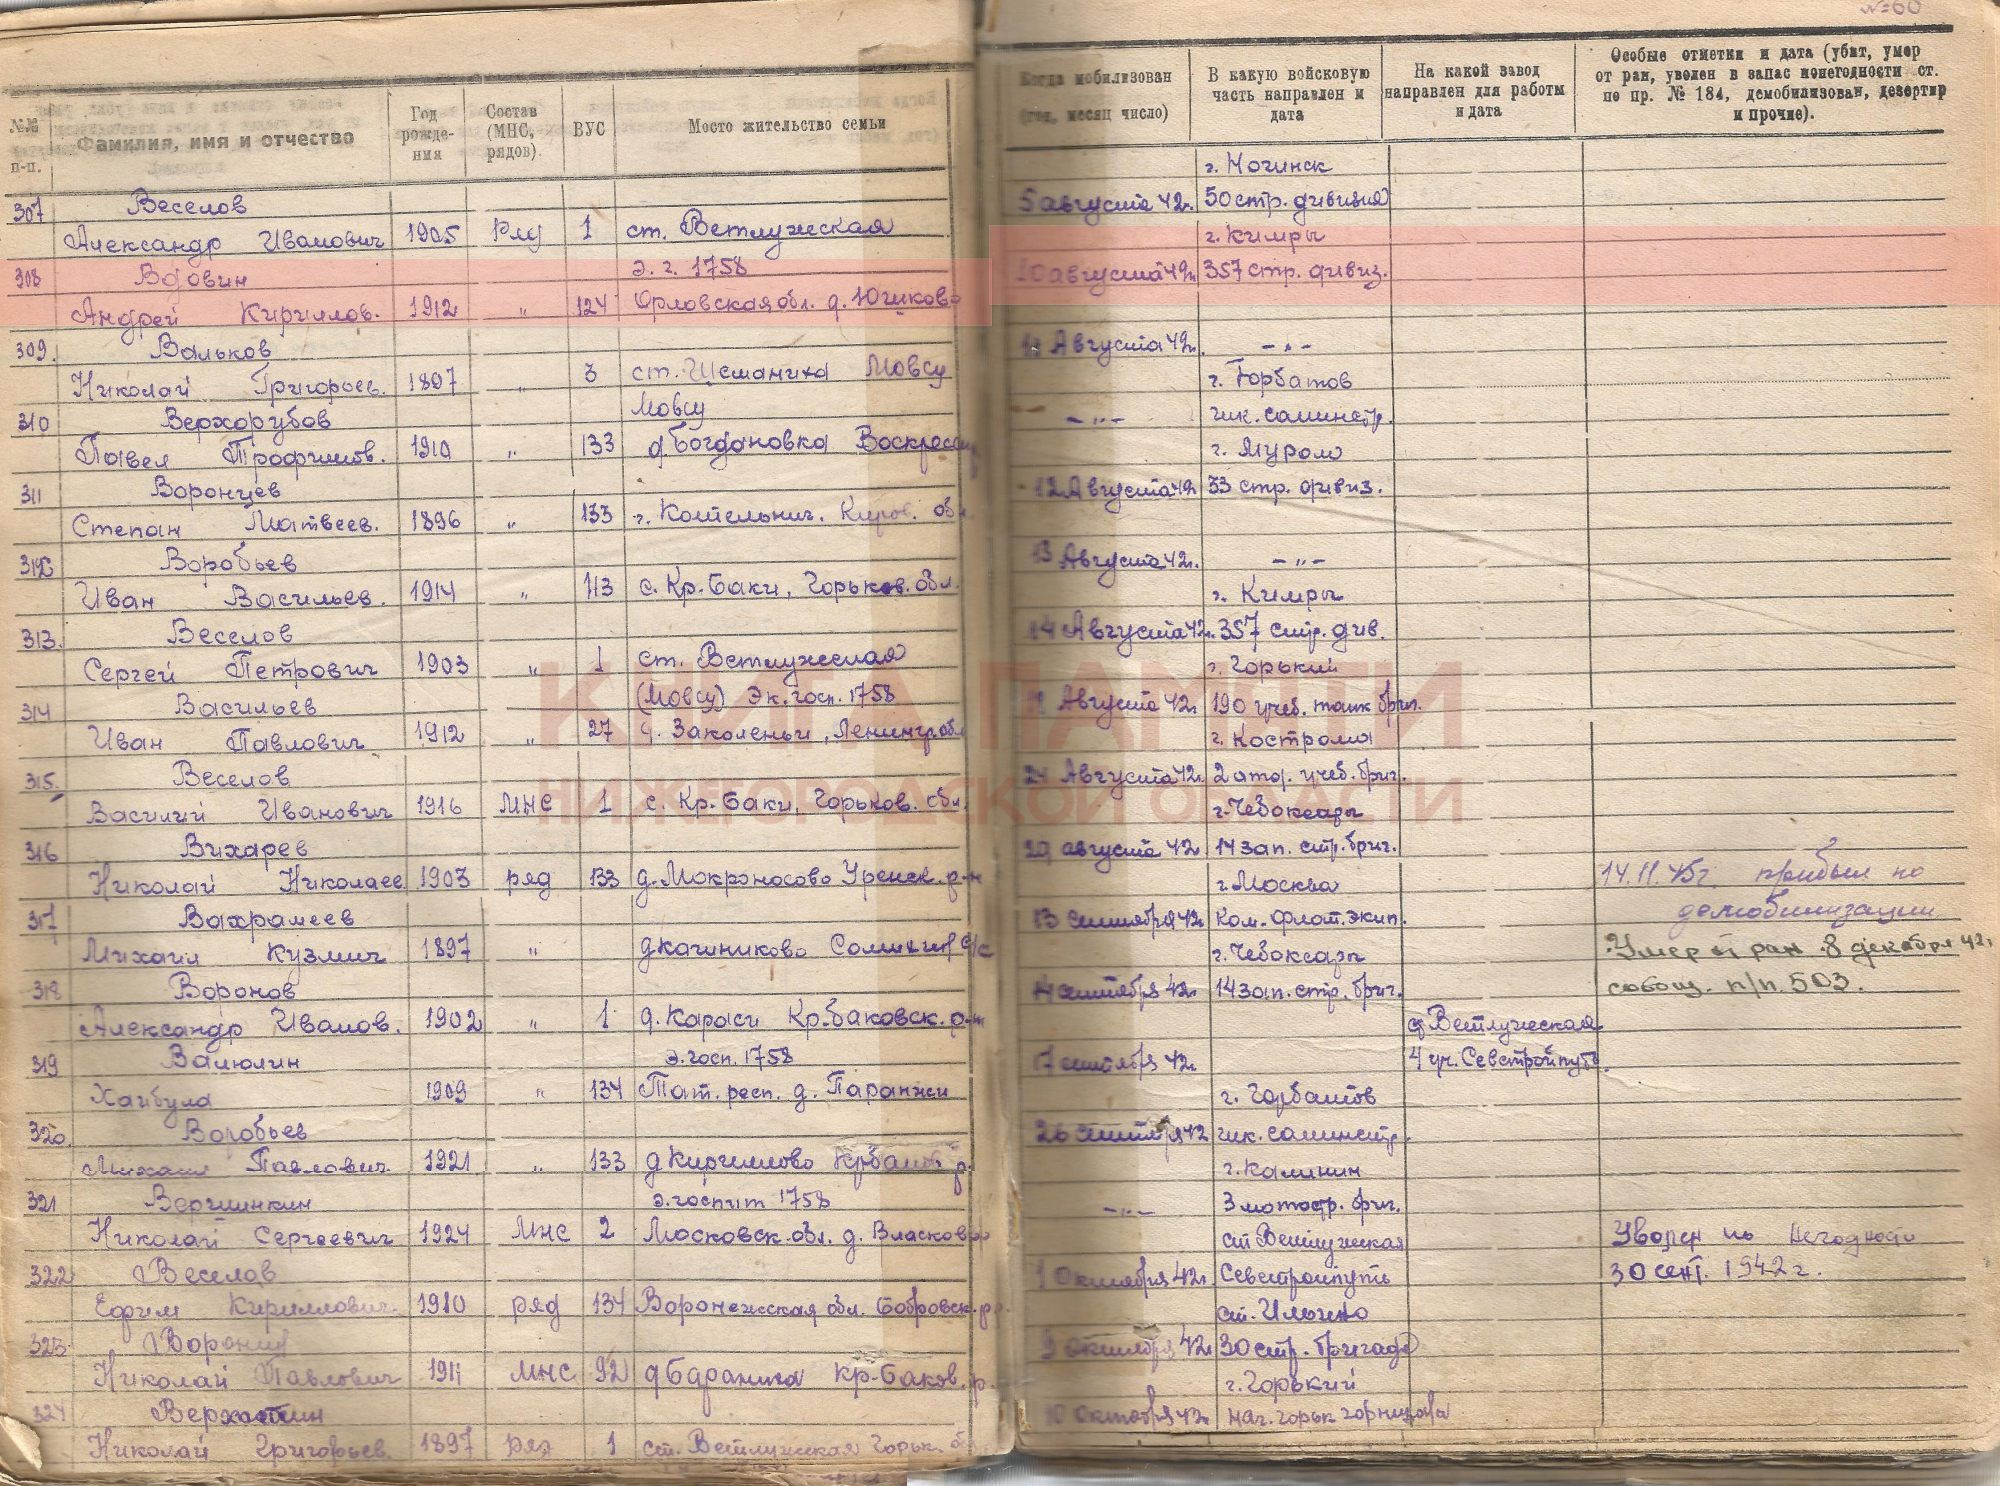 № п-п.
Фамилия, имя и отчество
Год рождe-ния
Состав (МНС, рядов).
ВУС
Место жительство семьи
307 Веселов
Александр Иванович 1905 Ряд 1 ст. Ветлужская
308 Вдовин э. г. 1758
Андрей Кириллов. 1912 „ 124 Орловская обл. д. Юшково
309. Вальков
Николай Григорьев. 1897 „ 3 ст. Шеманиха Мовсу
310 Верхорубов Мовсу
Павел Трофимов. 1910 „ 133 д Богдановка
311 Воронцев
Степан Матвеев. 1896 „ 133 г. Котельнич. Киров. обл.
312 Воробьев
Иван Васильев. 1914 „ 113 с. Кр. Баки, Горьков. обл.
313. Веселов
Сергей Петрович 1903 „ 1 ст. Ветлужская
314 Васильев (Мовсу) Эк. госп. 1758
Иван Павлович 1912 „ 27 Заколенье, Ленингр. обл
315. Веселов
Василий Иванович 1916 МНС 1 с. Кр. Баки, Горьков. обл.
316 Вихарев
Николай Николаев 1903 ряд 133 д. Мокроносово Уренск. р-н
317 Вахрамеев
Михаил Кузмич 1897 „ с/с
318 Воронов
Александр Иванов. 1902 „ 1 д. Караси Кр. баковск. р-н
319 Валюлин э. госп. 1758
Хайбула 1909 „ 134 Тат. респ. д. Параньи
320. Воробьев
Михаил Павлович. 1921 „ 133 д Кириллово
321 Вершинкин э. госпит 1758
Николай Сергеевич 1924 МНС 2 Московск. обл. д. Власково
322 Веселов
Ефим Кириллович. 1910 ряд 134 Воронежская обл. Бобровск. р
323 Воронин
Николай Павлович 1911 МНС 92 д Бараниха Кр-Баков. р.
324
Николай Григорьев. 1897 ряд 1 ст. Ветлужская Горьк. об
№ 60
Когда мобилизован (год, месяц число)
В какую войсковую часть направлен и дата
На какой завод направлен для работы и дата
Особые отметки и дата (убит, умер от ран, уволен в запас понегодности ст. по пр. № 184, демобилизован, дезертир и прочие).
г. Ногинск
5 августа 42г. 50 стр. дивизия
г. Кимры
10 августа 42г. 357 стр. дивиз.
Августа 42г. – „ –
г. Горбатов
– „ –
г. Муром
12 Августа 42 33 стр. дивиз.
13 Августа 42г. – „ –
г. Кимры
14 Августа 42г. 357 стр. див.
г. Горький
Августа 42г. 190 учеб. танк бриг.
г. Кострома
24 Августа 42г. 2 учеб. бриг.
г. Чебоксары
29 августа 42 14 зап. стр. бриг.
г. Москва 14.11.45г. прибыл по
13 сентября 42 Ком. флот. экип. демобилизации
г. Чебоксары Умер от ран 8 декабря 42г.
14 сентября 42г. 14 зап. стр. бриг. сообщ. п/п. 503.
ст Ветлужская
17 сентября 42г. 4 уч. Севстройпуть
г. Горбатов
26 сентября 42
г. Калинин
– „ – 3 мотостр. бриг.
ст Ветлужская Уволен по негодности
1 Октября 42г. Севстройпуть 30 сент. 1942 г.
ст. Ильино
9 октября 42г 30 стр. бригада
г. Горький
10 октября 42г.
КНИГА ПАМЯТИ
НИЖЕГОРОДСКОЙ ОБЛАСТИ